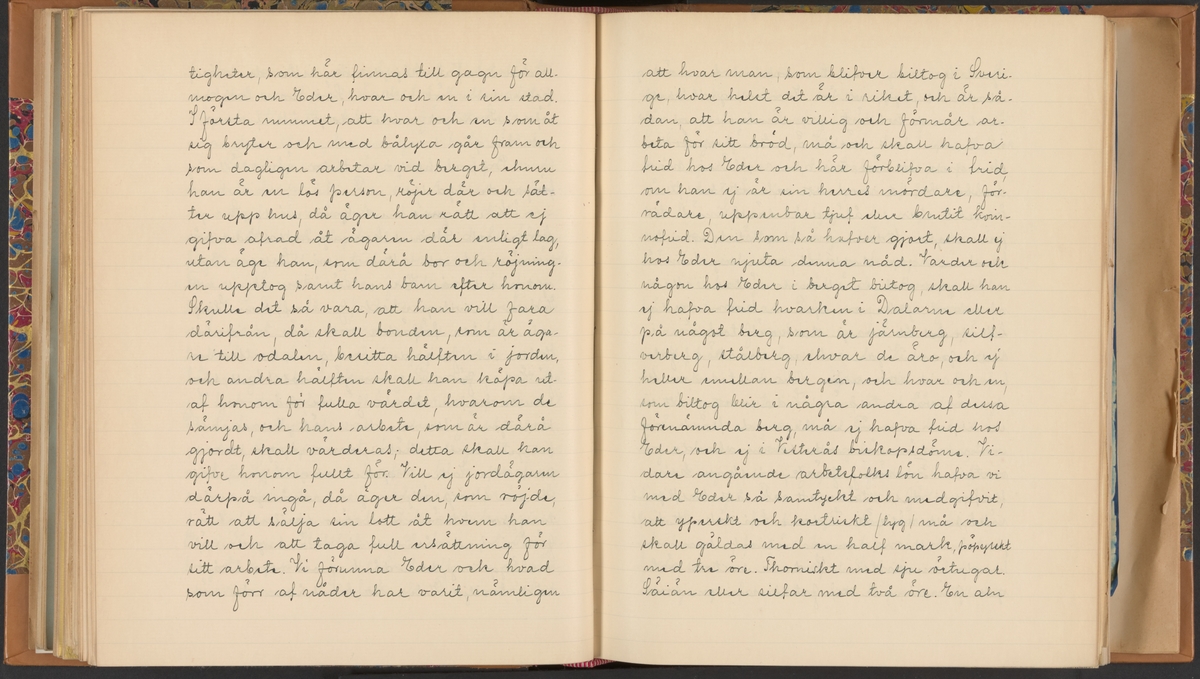 tigheter, som här finnas till gagn för all-
mogen och Eder, hvar och en i sin stad.
I första rummet, att hvar och en som åt
sig bryter och med bålyxa går fram och
som dagligen arbetar vid berget, ehuru
han är en lös person, röjer där och sät-
ter upp hus, då äger han rätt att ej
gifva afrad åt ägaren där enligt lag,
utan äge han, som därå bor och röjning-
en upptog samt hans barn efter honom.
Skulle det så vara, att han vill fara
därifrån, då skall bonden, som är äga-
re till odalen, besitta hälften i jorden,
och andra hälften skall han köpa ut
af honom för fulla värdet, hvarom de
sämjas, och hans arbete, som är därå
gjordt, skall värderas; detta skall han
gifve honom fullt för. Vill ej jordägaren
därpå ingå, då äger den, som röjde,
rätt att sälja sin lott åt hvem han
vill och att taga full ersättning för
sitt arbete. Vi förunna Eder ock hvad
som förr af nåder har varit, nämligen
att hvar man, som blifver biltog i Sveri-
ge, hvar helst det är i riket, och är så-
dan, att han är villig och förmår ar-
beta för sitt bröd, må och skall hafva
frid hos Eder och här förblifva i frid,
om han ej är sin herres mördare, för-
rädare, uppenbar tjuf eller brutit kvin-
nofrid. Den som så hafver gjort, skall ej
hos Eder njuta denna nåd. Varder ock
någon hos Eder i berget biltog, skall han
ej hafva frid hvarken i Dalarne eller
på något berg, som är järnberg, silf-
verberg, stålberg, ehvar de äro, och ej
heller emellan bergen, och hvar och en,
som biltog blir i några andra af dessa
förenämnda berg, må ej hafva frid hos
Eder, och ej i Vesterås biskopsdöme. Vi-
dare angående arbetsfolks lön hafva vi
med Eder så samtyckt och medgifvit,
att yperskt och kortriskt (tyg) må och
skall gäldas med en half mark, pöpyrskt
med tre öre. Thorniskt med sju örtugar.
Säiän eller silfar med två öre. En aln